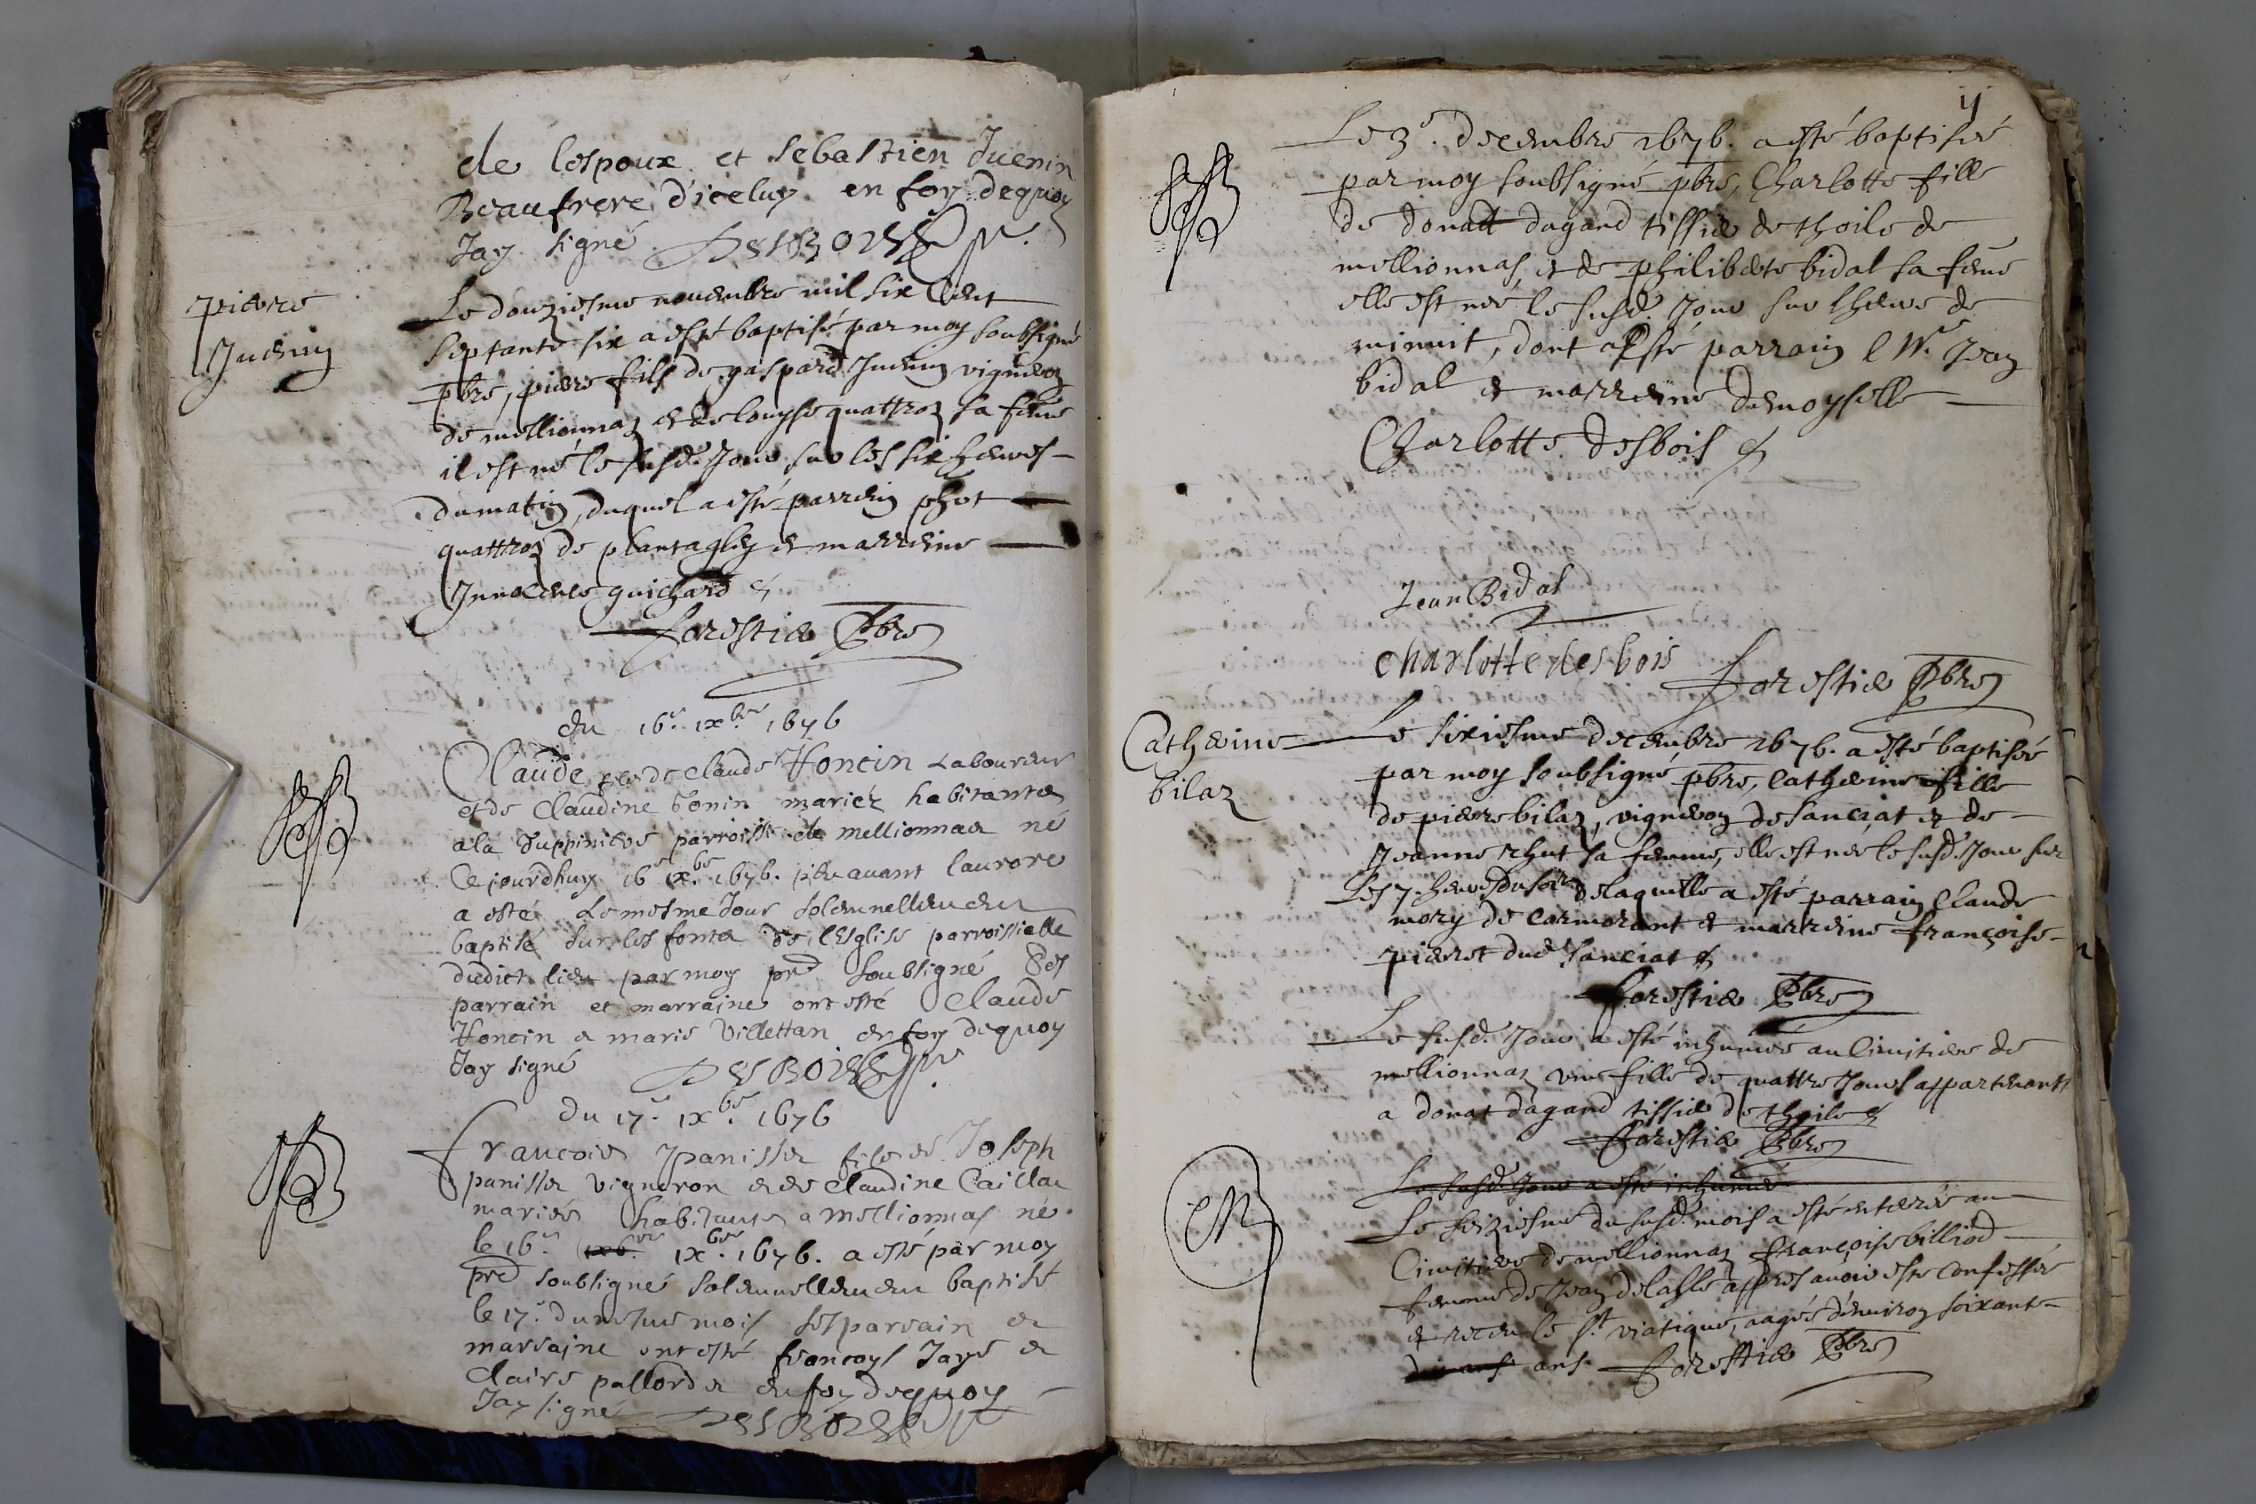 de lespoux et sebastien Juenin
Beaufrere d'iceluy en foy dequoy
Jay signé DESBOIS
pierre
Juenin
Le douziesme novembre mil six Cent
septante six a esté baptisé par moy soubsigné
pbre, pierre fils de gaspard Juenin vigneron
de mellionnaz et de louyse quattroz sa feme
il est né le susd. Jour sur les six heures
du matin, duquel a esté parrein
quattroz de plantaglay et marreine
Innocence guichard &
Forestier Pbre
du 16e ixbre 1676
Claude de Claude Honcin Laboureur
et de Claudine Tonin mariéz habitants
a la Juppiniere parroisse de mellionnas né
Cejourdhuy 16 ixbre 1676. peu avant laurore
a esté Le mesme Jour solemnellement
baptisé sur les fonts de lesglise parroissialle
dudict lieu par moy pre soubsigné Ses
parrain et marraine ont esté Claude
Honcin et marie Villettan en foy dequoy
Jay signé DESBOIS
Du 17e ixbre 1676
francois panisset fils de Joseph
panisset vigneron et de claudine Caillat
mariés habitants a Mellionnas né
le 16e ixbre 1676. a esté par moy
pre soubsigné solemnellement baptisé
le 17e du mesme mois ses parrain et
marraine ont esté francoys Jayr et
claire pallordet en foy dequoy
Jay signé DESBOIS
Le 3e. decembre 1676. a esté baptisée
par moy soubsigné pbre, Charlotte fille
de donatt dagand tissier de thoile de
mellionnas, et de philiberte bidal sa feme
elle est née le susd. Jour sur lheure de
minuit, dont a esté parrain Mre Jean
bidal et marreine demoyselle
Charlotte desbois &
Jean Bidal
charlotte des bois
Forestier Pbre
Catherine
bilaz
Le sixiesme decembre 1676. a esté baptisée
par moy soubsigné pbre, Catherine fille
de pierre bilaz, vigneron de sanciat et de
Jeanne sa femme, elle est née le susd. Jour sur
Les 7. heures du soir de laquelle a esté parrain Claude
mory de cormorant et marreine françoise
pieret dud. sanciat &
Forestier Pbre
Le susd. Jour a esté inhumée au Cimitiere de
mellionnaz une fille de quattre Jours appartenant
a donat dagand tissier de thoile &
Forestier Pbre
Le susd. Jour a esté inhumée
Le seiziesme du susd. mois a esté enterée au
Cimitiere de mellionnaz françoise billiod
femme de Jean delasle appres avoir esté confessée
et receu le St viatique, aagée d'environ soixante
dix ans ans. Forestier Pbre